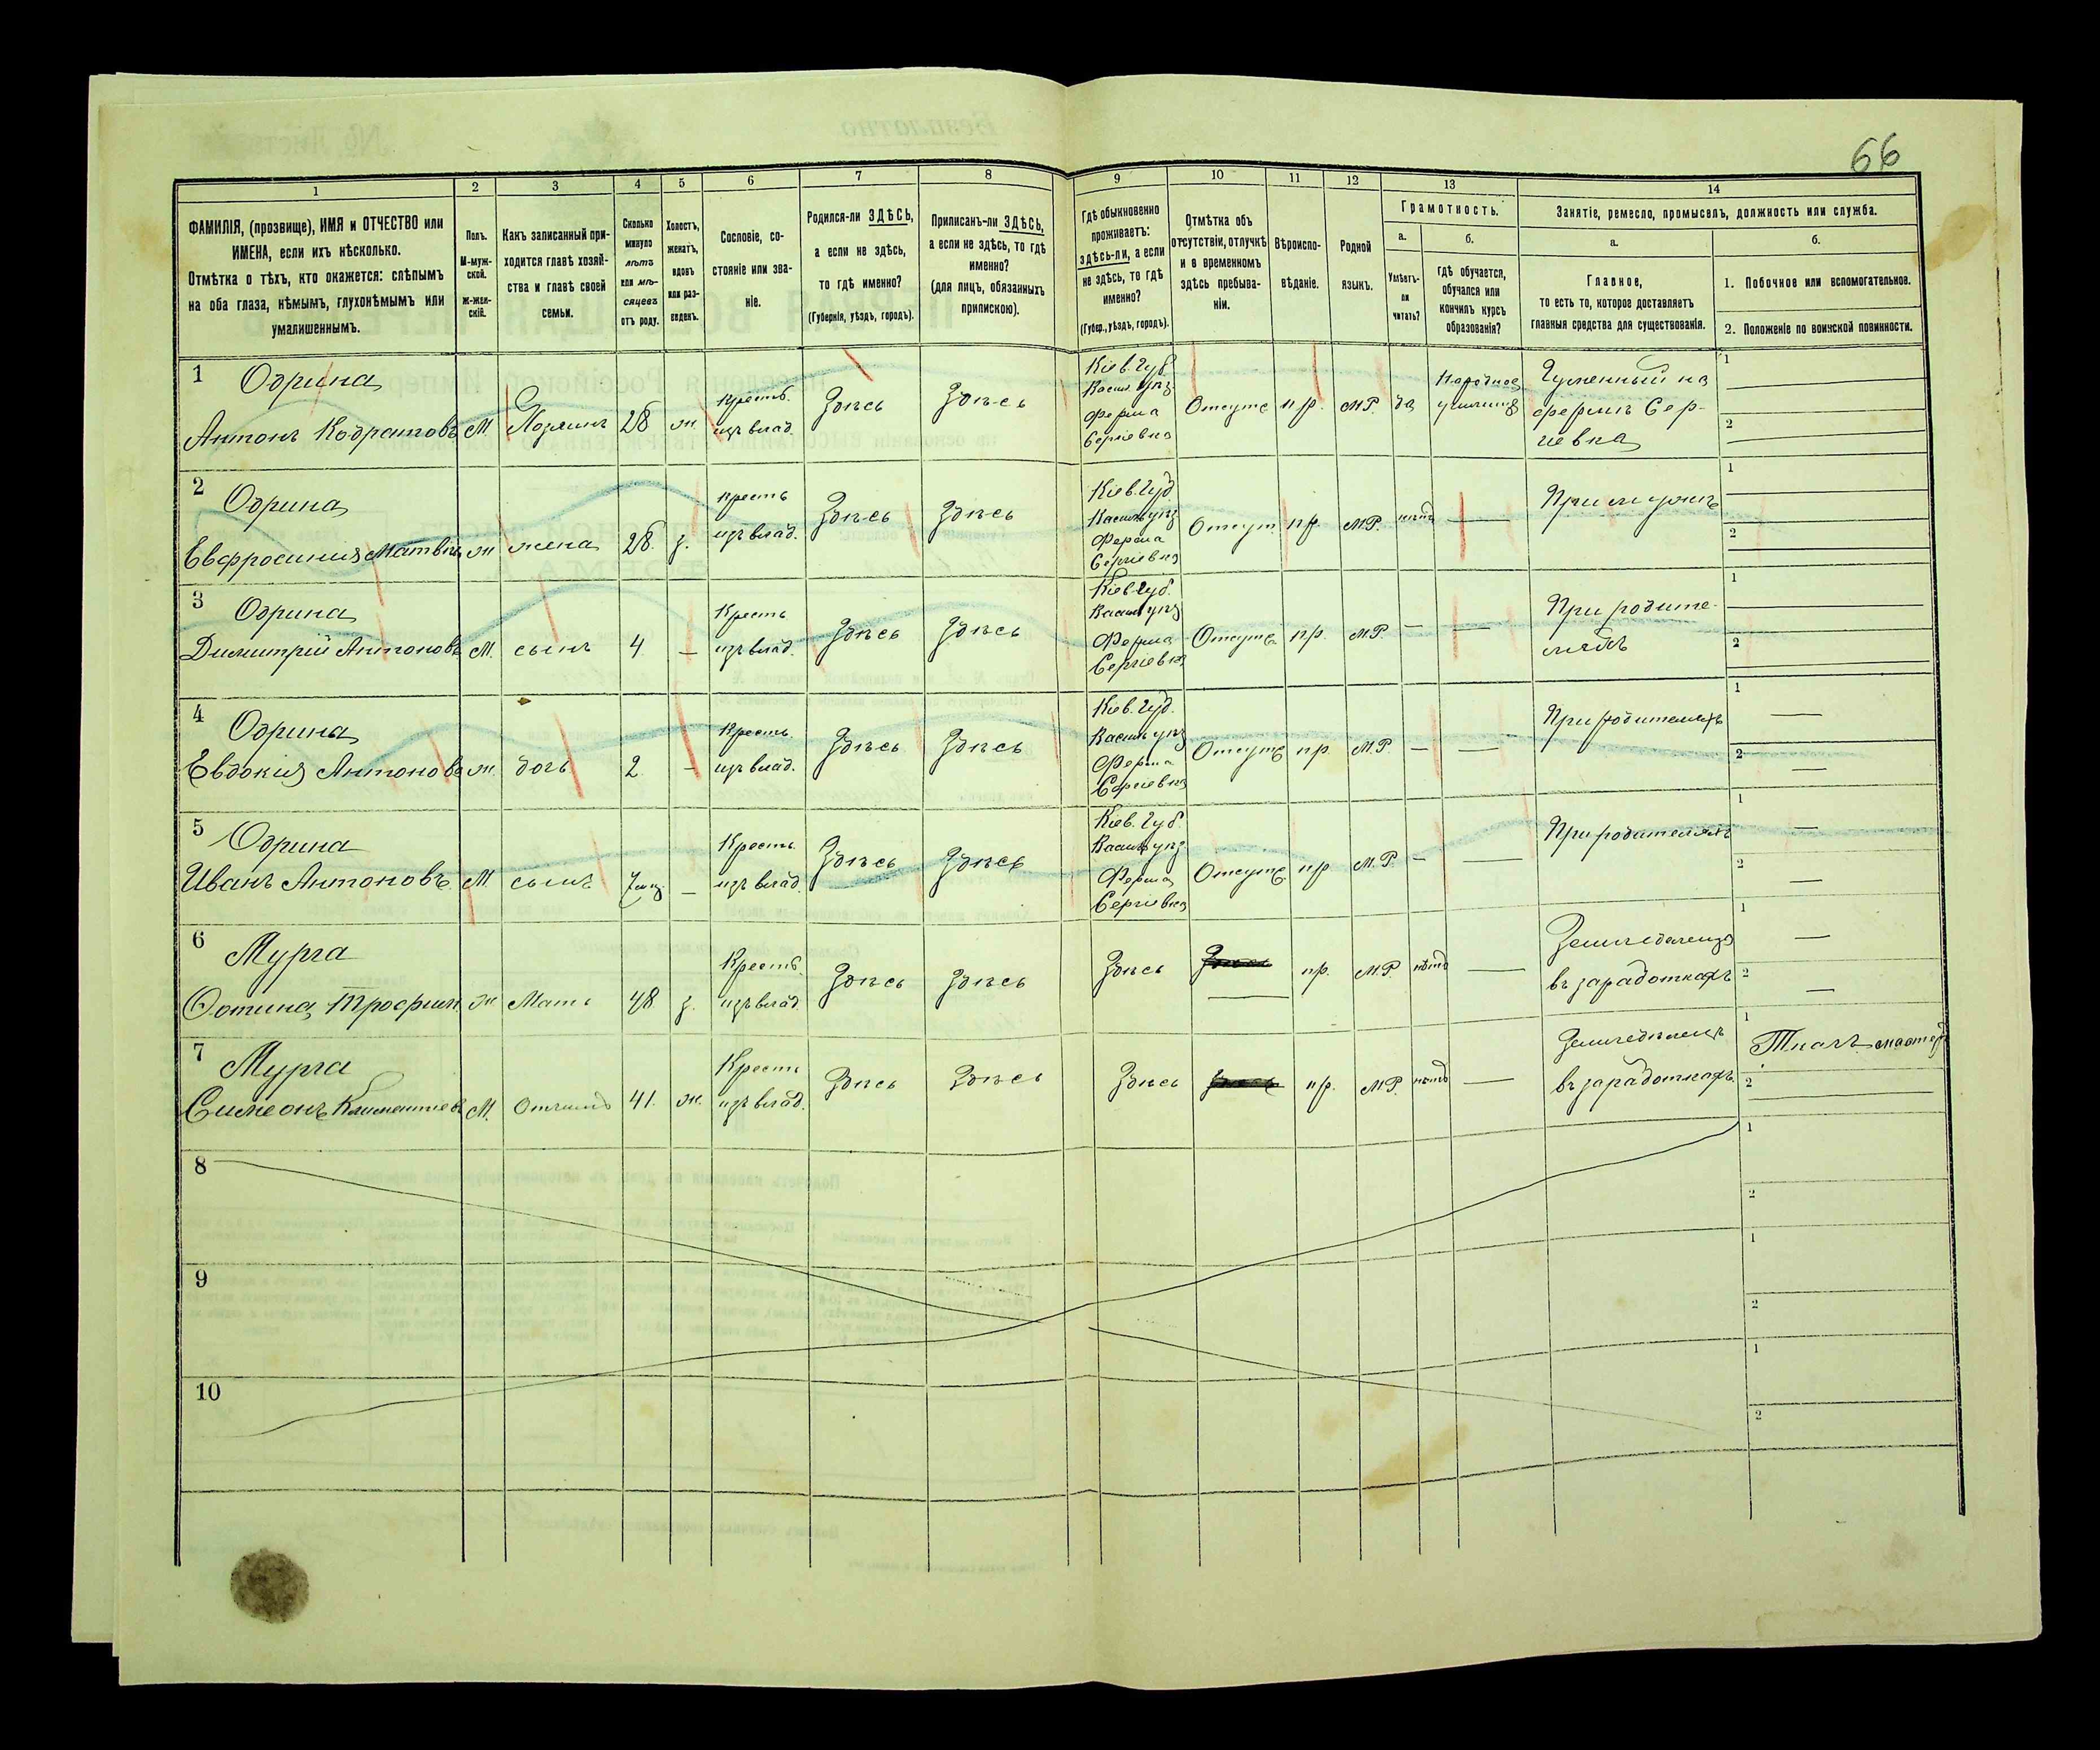 66
1 2 3 4 5 6 7 8 9 10 11 12 13 14
ФАМИЛІЯ, (прозвище), ИМЯ и ОТЧЕСТВО или ИМЕНА, если ихъ нѣсколько.
Отмѣтка о тѣхъ, кто окажется: слѣпымъ на оба глаза, нѣмымъ, глухонѣмымъ или умалишеннымъ.
Полъ. М-мужской. Ж-женскій.
Какъ записанный приходится главѣ хозяйства и главѣ своей семьи.
Сколько минуло лѣтъ или мѣсяцевъ отъ роду.
Холостъ, женатъ, вдовъ или разведенъ.
Сословіе, состояніе или званіе.
Родился-ли ЗДѢСЬ, а если не здѣсь, то гдѣ именно? (Губернія, уѣздъ, городъ).
Приписанъ-ли ЗДѢСЬ, а если не здѣсь, то гдѣ именно? (для лицъ, обязанныхъ припискою).
Гдѣ обыкновенно проживаетъ: здѣсь-ли, а если не здѣсь, то гдѣ именно? (Губер., уѣздъ, городъ).
Отмѣтка объ отсутствіи, отлучкѣ и о временномъ здѣсь пребываніи.
Вѣроисповѣданіе.
Родной языкъ.
Грамотность.
а. Умѣетъ-ли читать?
б. Гдѣ обучается, обучался или кончилъ курсъ образованія?
Занятіе, ремесло, промыселъ, должность или служба.
а. Главное, то есть то, которое доставляетъ главныя средства для существованія.
б. 1. Побочное или вспомогательное.
2. Положеніе по воинской повинности.
1 Одрина Антонъ Кодратовъ М. Хозяинъ 28 ж. крестъ. изъ влад. Здѣсь Здѣсь Кіев. Губ. Васил. уѣз. Ферма Сергіевка Отсутс пр. М.Р. да Народное училище Гуменный на фермѣ Сергіевка 1 2
2 Одрина Евфросинія Матвѣе ж жена 28. з. крестъ изъ влад. Здѣсь Здѣсь Кіев. Губ. Васил уѣз Ферма Сергіевка Отсутс. пр. М.Р. нѣтъ — При мужѣ 1 2
3 Одрина Димитрій Антоновъ М. сынъ 4 — Крестъ изъ влад. Здѣсь Здѣсь Кіев. Губ. Васил уѣз Ферма Сергіевка Отсутс. пр. М.Р. — — При родителяхъ 1 2
4 Одрина Евдокія Антонова ж. дочь 2 — Крестъ изъ влад. Здѣсь Здѣсь Кіев. Губ. Васил уѣз Ферма Сергіевка Отсутс пр. М.Р. — — При родителяхъ 1 — 2 —
5 Одрина Иванъ Антоновъ М сынъ 7 мц. — Крестъ изъ влад. Здѣсь Здѣсь Кіев. Губ. Васил уѣз Ферма Сергіевка Отсутс. пр М.Р. — — При родителяхъ 1 — 2 —
6 Мурга Фотина Трофим ж Мать 48 з. Крестъ. изъ влад Здѣсь Здѣсь Здѣсь — пр. М.Р нѣтъ — Земледѣлецъ въ заработкахъ 1 — 2 —
7 Мурга Симеонъ Климентіев М. Отчимъ 41. ж. Крестъ изъ влад. Здѣсь Здѣсь Здѣсь пр. М.Р. нѣтъ — Земледѣлецъ въ заработкахъ. 1 Ткачъ мастер 2
8 1 2
9 1 2
10 1 2